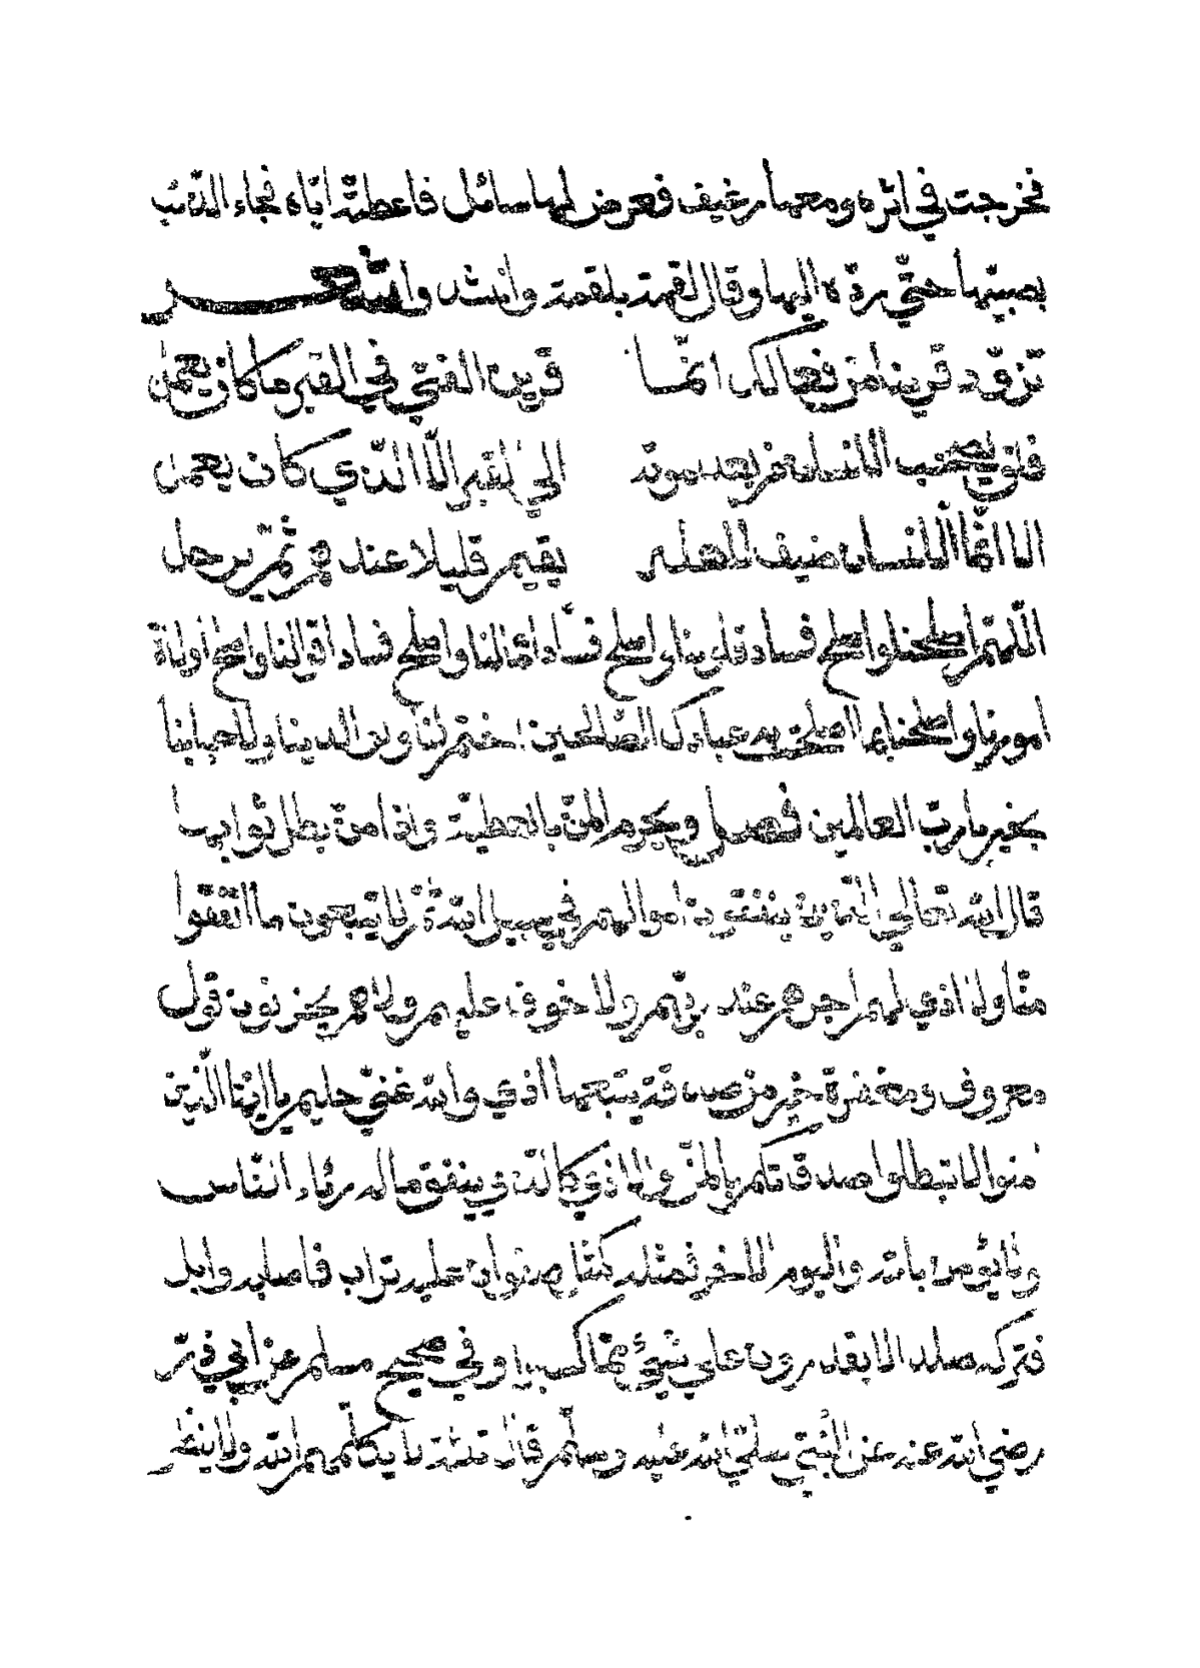 فخرجت في اثره ومعها رغيف فعرض لها سائل فاعطته اياه فجاء الذئب
بصبيها حتى رده اليها وقال لقمة بلقمة وانشد وانشد شعر
تزود قرينا من فعالك انما قرين الفتى في القبر ما كان يعمل
فلن يصحب الانسان من بعد موته الى القبر الا الذي كان يعمل
الا انما الانسان ضيف لاهله يقيم قليلا عندهم ثم يرحل
اللهم اصلحنا واصلح فساد قلوبنا واصلح فساد اعمالنا واصلح فساد اقوالنا واصلح اولاة
امورنا واصلحنا بما اصلحت به عبادك الصالحين اختم لنا ولوالدينا ولاحبابنا
بخير يا رب العالمين فصل ويحرم المن بالعطية واذا من بطل ثوابها
قال الله تعالى الذين ينفقون اموالهم في سبيل الله ثم لا يتبعون ما انفقوا
منا ولا اذي لهم اجرهم عند ربهم ولا خوف عليهم ولا هم يحزنون قول
معروف ومغفرة خير من صدقة يتبعها اذي والله غني حليم يا ايها الذين
امنوا لا تبطلوا صدقاتكم بالمن والاذي كالذي ينفق ماله رئاء الناس
ولا يؤمن بالله واليوم الاخر فمثله كمثل صفوان عليه تراب فاصابه وابل
فتركه صلدا لا يقدرون على شيئ مما كسبوا وفي صحيح مسلم عن ابي ذر
رضي الله عنه عن النبي صلى الله عليه وسلم قال ثلثة لا يكلمهم الله ولا ينظر